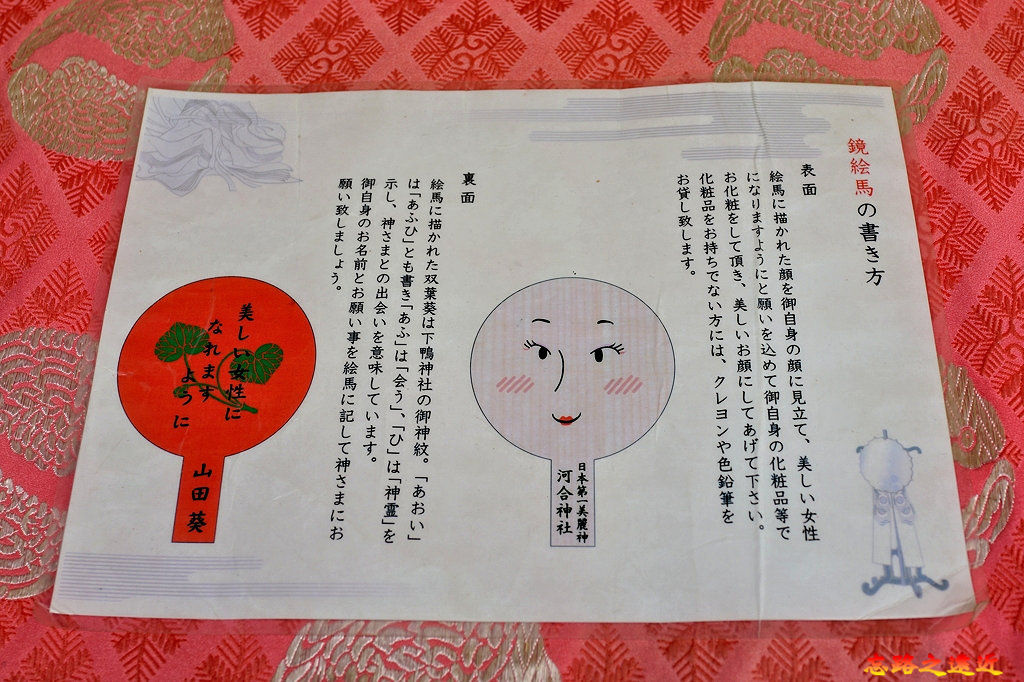 鏡絵馬の書き方
表面
絵馬に描かれた顔を御自身の顔に見立て、美しい女性
になりますようにと願いを込めて御自身の化粧品等で
お化粧をして頂き、美しいお顔にしてあげて下さい。
化粧品をお持ちでない方には、クレヨンや色鉛筆を
お貸し致します。
日本第一美麗神
河合神社
裏面
絵馬に描かれた双葉葵は下鴨神社の御神紋。「あおい」
は「あふひ」とも書き「あふ」は「会う」、「ひ」は「神霊」を
示し、神さまとの出会いを意味しています。
御自身のお名前とお願い事を絵馬に記して神さまにお
願い致しましょう。
美しい女性に
なれます
ように
山田葵
忘路之遠近